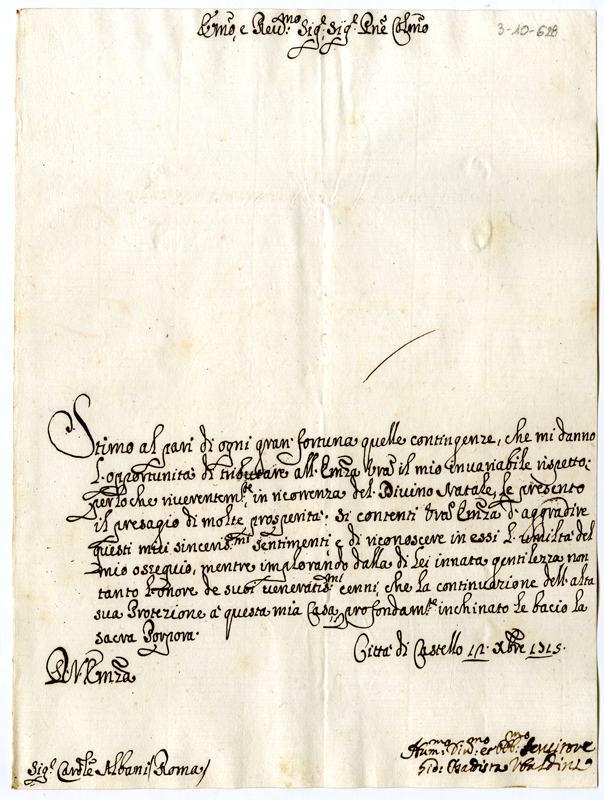 Em̃o, e Reud.mo Sig.r Sig.r Pñe Colmo
3-10-628
Stimo al pari di ogni gran fortuna quelle contingenze, che mi danno
l'opportunità di tributare all'Emza Vra il mio inuariabile rispetto;
perloche riuerentem.te in ricorrenza del Diuino Natale, le presento
il presagio di molte prosperità. Si contenti Vra Emza d'aggradire
questi miei sinceris.mi sentimenti, e di riconoscere in essi l'umiltà del
mio ossequio, mentre implorando dalla di Lei innata gentilezza non
tanto l'onore de suoi ueneratis.mi cenni, che la continuazione dell'alta
sua Protezione à questa mia Casa, profondam.te inchinato le bacio la
sacra Porpora.
Città di Castello 17 Xbre 1715.
D. V. Emza
Hum.mo Diu.mo et Obb.mo Seruitore
Gio: Battista Vbaldini
Sig.r Card.le Albani / Roma /